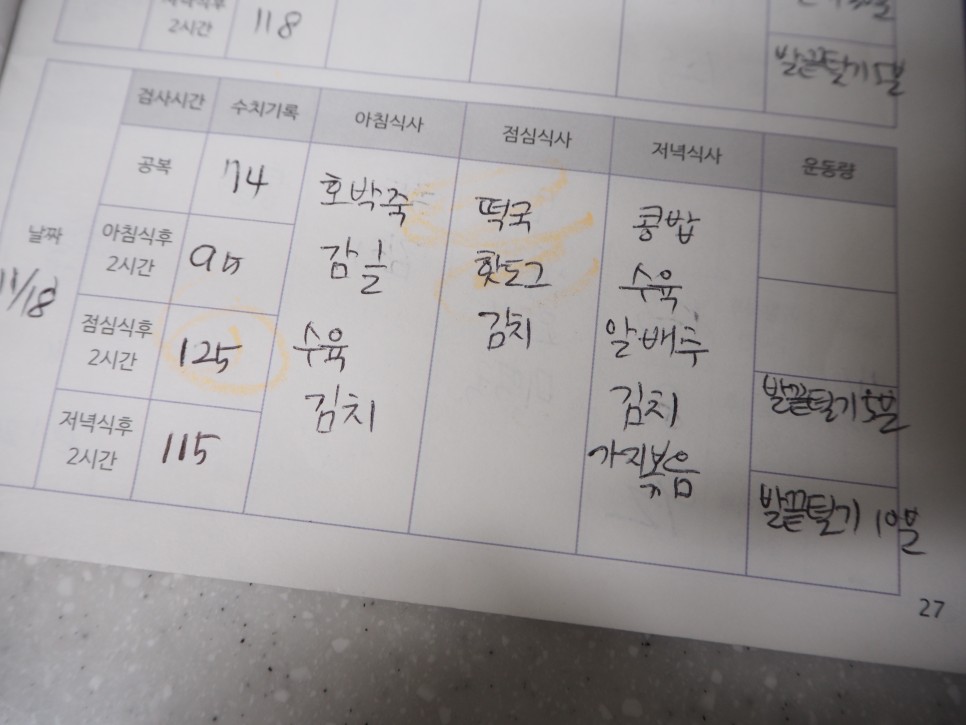 저녁식후
2시간
118
발끝털기 5분
검사시간
수치기록
아침식사
점심식사
저녁식사
운동량
날짜
11/18
공복
74
아침식후
2시간
95
점심식후
2시간
125
저녁식후
2시간
115
호박죽
감귤
수육
김치
떡국
핫도그
김치
콩밥
수육
알배추
김치
가지볶음
발끝털기 5분
발끝털기 10분
27